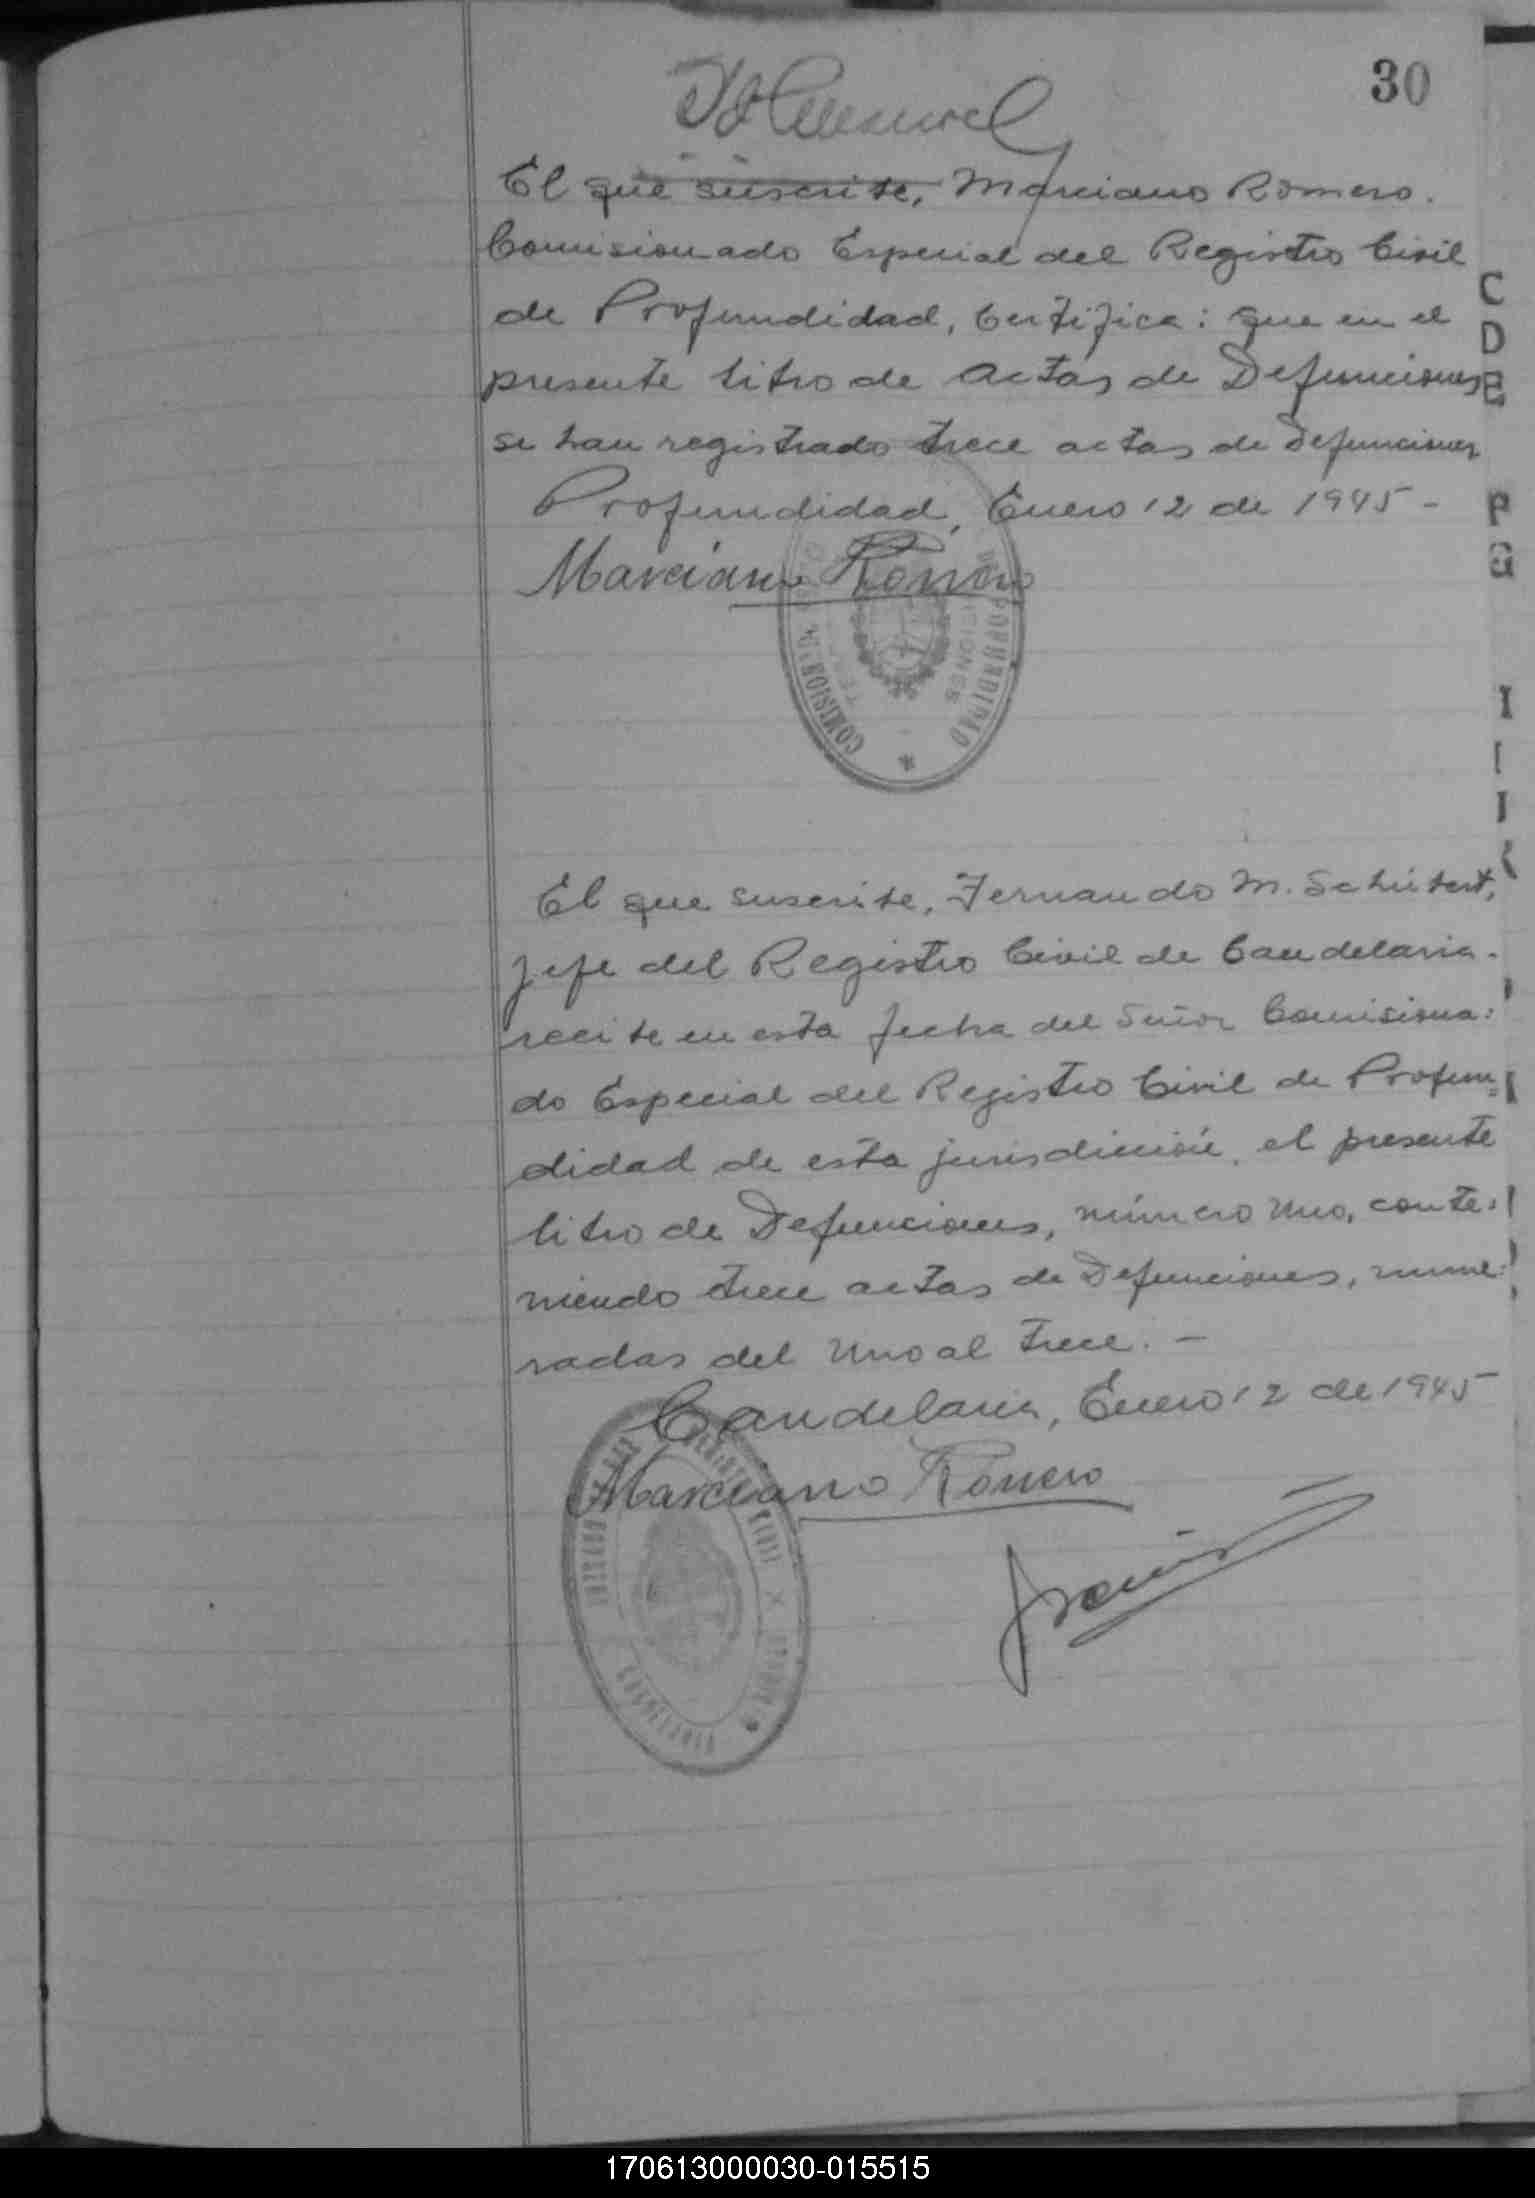 30
El que suscribe, Marciano Romero.
Comisionado Especial del Registro Civil
de Profundidad, Certifica: que en el
presente libro de actas de Defunciones
se han registrado trece actas de Defunciones
Profundidad, Enero 12 de 1945 -
Marciano Romero
COMISION
PROFUNDIDAD
MISIONES
C
D
E
P
G
El que suscribe, Fernando M. Schubert,
jefe del Registro Civil de Candelaria.
recibe en esta fecha del Señor Comisiona-
do Especial del Registro Civil de Profun=
didad de esta jurisdicción, el presente
libro de Defunciones, número uno, conte-
niendo trece actas de Defunciones, nume-
radas del uno al trece. -
Candelaria, Enero 12 de 1945
Marciano Romero
170613000030-015515